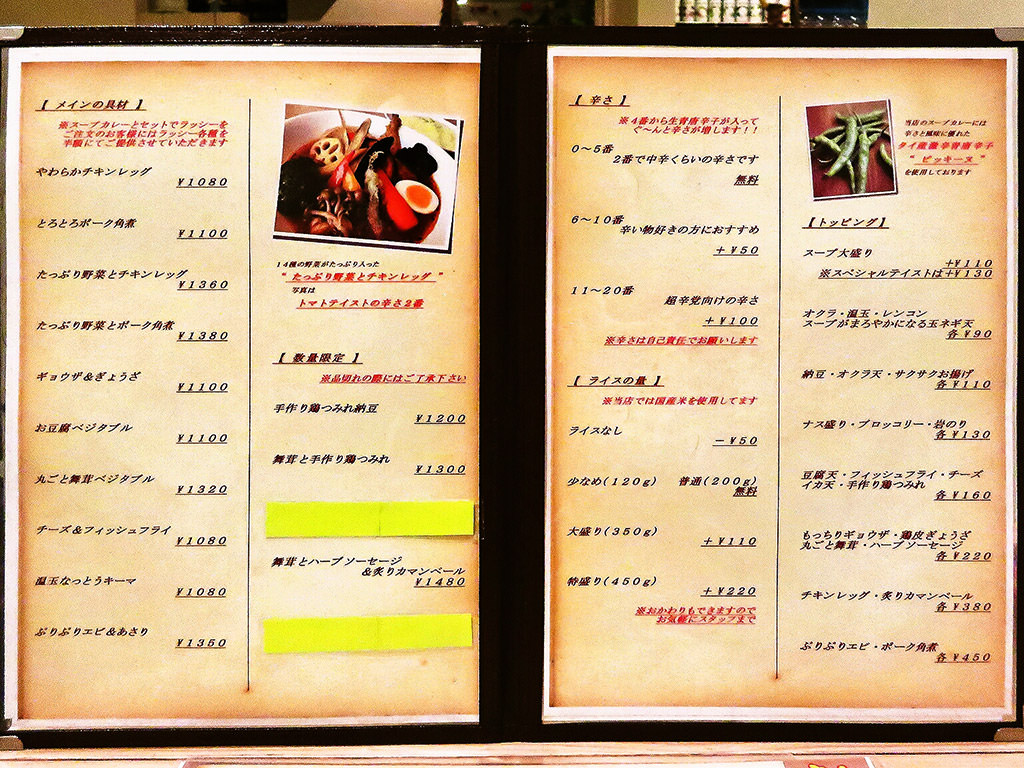 【 メインの具材 】
※スープカレーとセットでラッシーを
ご注文のお客様にはラッシー各種を
半額にてご提供させていただきます
やわらかチキンレッグ
¥1080
とろとろポーク角煮
¥1100
たっぷり野菜とチキンレッグ
¥1360
たっぷり野菜とポーク角煮
¥1380
ギョウザ&ぎょうざ
¥1100
お豆腐ベジタブル
¥1100
丸ごと舞茸ベジタブル
¥1320
チーズ&フィッシュフライ
¥1080
温玉なっとうキーマ
¥1080
ぷりぷりエビ&あさり
¥1350
14種の野菜がたっぷり入った
“ たっぷり野菜とチキンレッグ ”
写真は
トマトテイストの辛さ2番
【 数量限定 】
※品切れの際にはご了承下さい
手作り鶏つみれ納豆
¥1200
舞茸と手作り鶏つみれ
¥1300
舞茸とハーブソーセージ
&炙りカマンベール
¥1480
【 辛さ 】
※4番から生青唐辛子が入って
ぐ~んと辛さが増します!!
0~5番
2番で中辛くらいの辛さです
無料
6~10番
辛い物好きの方におすすめ
+¥50
11~20番
超辛党向けの辛さ
+¥100
※辛さは自己責任でお願いします
【 ライスの量 】
※当店では国産米を使用してます
ライスなし
-¥50
少なめ(120g) 普通(200g)
無料
大盛り(350g)
+¥110
特盛り(450g)
+¥220
※おかわりもできますので
お気軽にスタッフまで
当店のスープカレーには
辛さと風味に優れた
タイ産激辛青唐辛子
“ ピッキーヌ ”
を使用しております
【トッピング】
スープ大盛り
+¥110
※スペシャルテイストは+¥130
オクラ・温玉・レンコン
スープがまろやかになる玉ネギ天
各¥90
納豆・オクラ天・サクサクお揚げ
各¥110
ナス盛り・ブロッコリー・岩のり
各¥130
豆腐天・フィッシュフライ・チーズ
イカ天・手作り鶏つみれ
各¥160
もっちりギョウザ・鶏皮ぎょうざ
丸ごと舞茸・ハーブソーセージ
各¥220
チキンレッグ・炙りカマンベール
各¥380
ぷりぷりエビ・ポーク角煮
各¥450